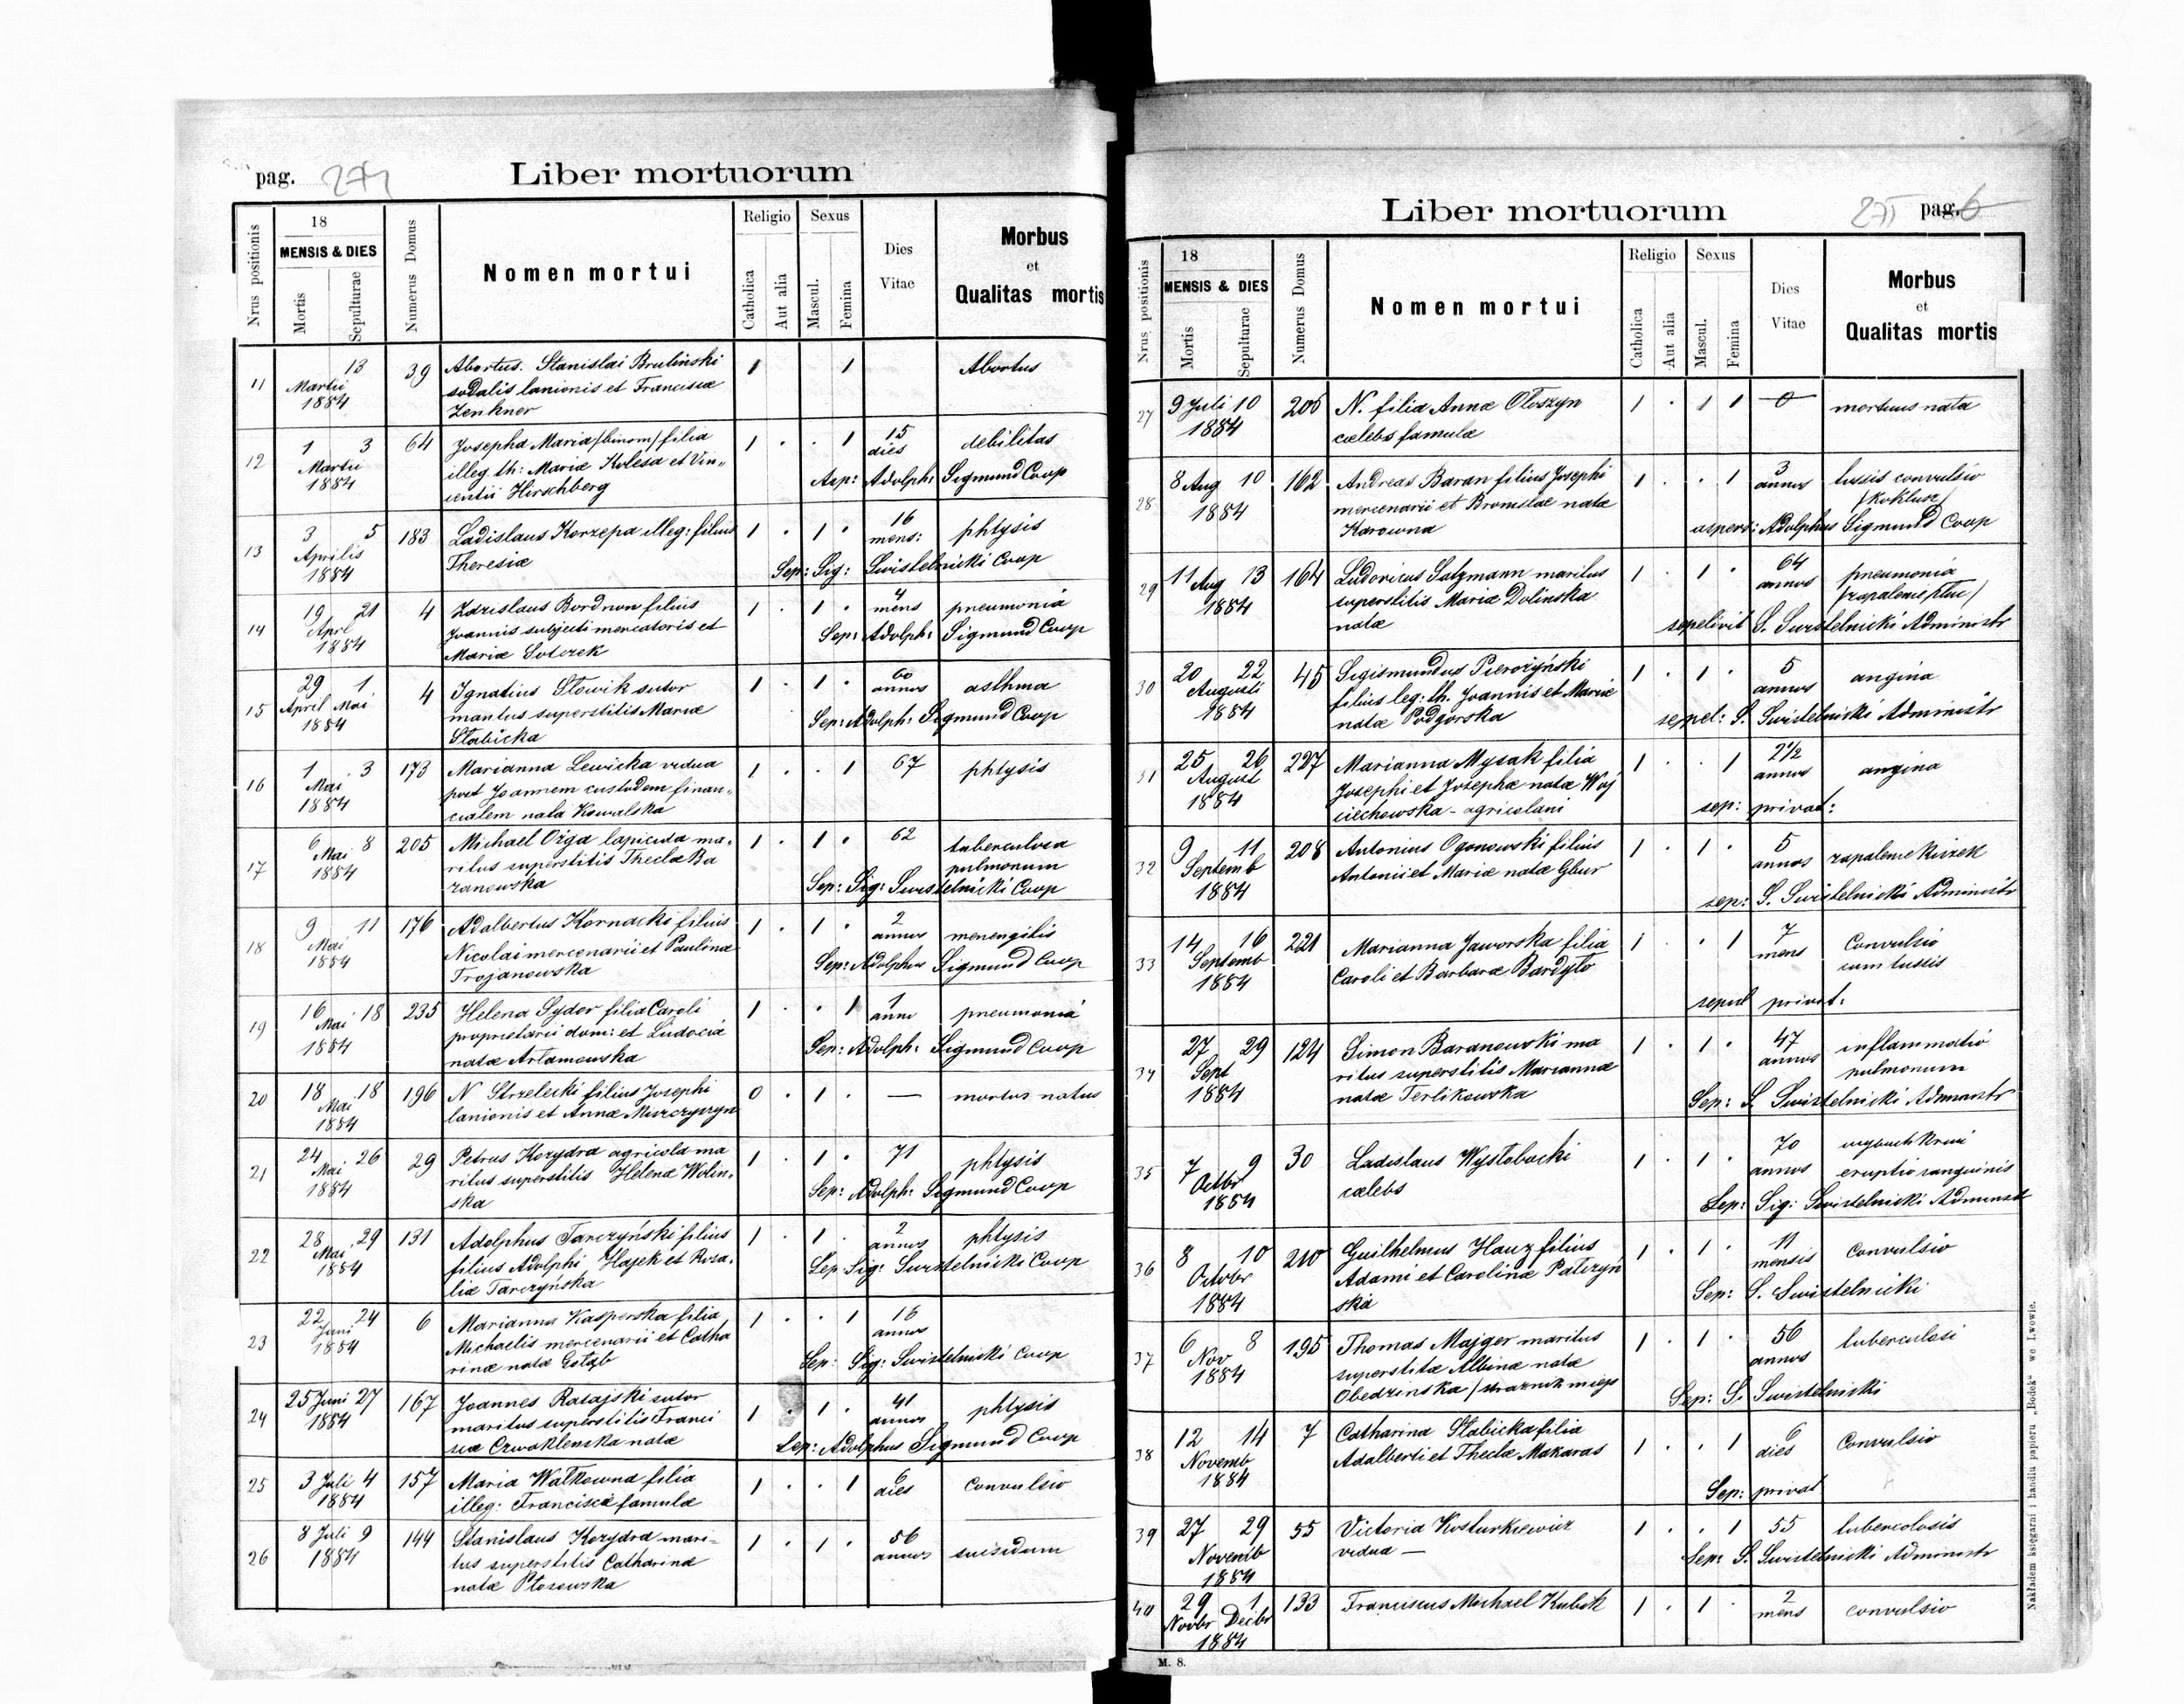 pag. 274 Liber mortuorum
Nrus positionis 18 MENSIS & DIES Mortis Sepulturae Numerus Domus Nomen mortui Religio Catholica Aut alia Sexus Mascul. Femina Dies Vitae Morbus et Qualitas mortis
11 13 39 Abortus. Stanislai Brulinski 1 1 Abortus
Martii sodalis lanionis et Francisca
1884 Zenkner
12 1 3 64 Josepha Maria /binom/ filia 1 . . 1 15 debilitas
Martii illeg. th: Mariæ Kolesa et Vin„ dies
1884 centii Hirschberg Asp: Adolph: Sigmund Coop
13 3 5 183 Ladislaus Korzepa illeg: filius 1 . 1 . 16 phtysis
Aprilis Theresiæ mens:
1884 Sep: Sig: Swistelnicki Coop
14 19 21 4 Zdzislaus Bordnon filius 1 . 1 . 4 pneumonia
Aprl Joannis subjecti mercatoris et mens
1884 Mariæ Soterek Sep: Adolph: Sigmund Coop
15 29 1 4 Ignatius Słowik sutor 1 . 1 . 60 asthma
April Mai maritus superstitis Mariæ annos
1884 Słabicka Sep: Adolph: Sigmund Coop
16 1 3 173 Marianna Lewicka vidua 1 . . 1 67 phtysis
Mai post Joannem custodem finan„
1884 cialem nata Kowalska
17 6 8 205 Michael Ożga lapicida ma, 1 . 1 . 62 tuberculosa
Mai ritus superstitis Thecla Ba pulmonum
1884 ranowska Sep: Sig: Swistelnicki Coop
18 9 11 176 Adalbertus Kornacki filius 1 . 1 . 2 menengitis
Mai Nicolai mercenarii et Paulinæ annos
1884 Trojanowska Sep: Adolphus Sigmund Coop
19 16 18 235 Helena Sydor filia Caroli 1 . . 1 1 pneumonia
Mai proprietarii dom: et Ludocia anno
1884 natæ Artamowska Sep: Adolph: Sigmund Coop
20 18 18 196 N Strzelecki filius Josephi 0 . 1 . — mortus natus
Mai lanionis et Annæ Murczyszyn
1884
21 24 26 29 Petrus Kozydra agricola ma 1 . 1 . 71 phtysis
Mai ritus superstitis Helena Wolin„
1884 ska Sep: Adolph: Sigmund Coop
22 28 29 131 Adolphus Tarczyński filius 1 . 1 . 2 phtysis
Mai filius Adolphi Hajek et Rosa, annos
1884 liæ Tarczyńska Sep Sig: Swistelnicki Coop
23 22 24 6 Marianna Kasperska filia 1 . . 1 16
Juni Michaelis mercenarii et Catha annos
1884 rinæ natæ Gołąb Sep: Sig: Swistelnicki Coop
24 25 Juni 27 167 Joannes Ratajski sutor 1 . 1 . 41 phtysis
1884 maritus superstitis Franci annos
scæ natæ Sep: Adolphus Sigmund Coop
25 3 Juli 4 157 Maria Walkowna filia 1 . . 1 6 convulsio
1884 illeg: Franciscæ famulæ dies
26 8 Juli 9 144 Stanislaus Kozydra mari= 1 . 1 . 56 suicidum
1884 tus superstitis Catharina annos
natæ Ptosowska
Liber mortuorum 275 pag. 6
Nrus positionis 18 MENSIS & DIES Mortis Sepulturae Numerus Domus Nomen mortui Religio Catholica Aut alia Sexus Mascul. Femina Dies Vitae Morbus et Qualitas mortis
27 9 Juli 10 206 N. filia Annæ Ołoszyn 1 . 1 1 0 mortuus nata
1884 cælebs famulæ
28 8 Aug 10 162 Andreas Baran filius Josephi 1 . . 1 3 tussis convulsiv
1884 mercenarii et Bronislæ natæ annos /koklusz/
Karowna aspers: Adolphus Sigmund Coop
29 11 Aug 13 164 Ludovicus Salzmann maritus 1 . 1 . 64 pneumonia
1884 superstitis Mariæ Dolinska annos
natæ sepelivit S. Swistelnicki Administr
30 20 22 45 Sigismundus Pierożyński 1 . 1 . 5 angina
Augusti filius leg: th. Joannis et Mariæ annos
1884 natæ Podgorska sepel: S. Swistelnicki Administr
31 25 26 227 Marianna Mysak filia 1 . . 1 2 1/2 angina
August Josephi et Josephæ natæ Woj annos
1884 ciechowska - agricolani sep: privat:
32 9 11 208 Antonius Ogonowski filius 1 . 1 . 5 zapalenie kiszek
Septemb Antonii et Mariæ natæ Gbur annos
1884 sep: S. Swistelnicki Administr
33 14 16 221 Marianna Jaworska filia 1 . 1 7 Convulsio
Septemb Caroli et Barbaræ Bardyło mens cum tussis
1884 sepul privat:
34 27 29 124 Simon Baranowski ma 1 . 1 . 47 inflammatio
Sept ritus superstitis Marianna annos pulmonum
1884 natæ Terlikowska Sep: S. Swistelnicki Administr
35 7 9 30 Ladislaus Wysłobocki 1 . 1 . 70 wybuch krwi
Octbr cælebs annos eruptio sanguinis
1884 Sep: Sig: Swistelnicki Administ
36 8 10 210 Guilhelmus Hauz filius 1 . 1 . 11 Convulsio
Octobr Adami et Carolinæ Patrzyń mensis
1884 ska Sep: S. Swistelnicki
37 6 8 195 Thomas Majger maritus 1 . 1 . 56 tuberculosi
Nov superstitæ Albinæ natæ annos
1884 Obedzinska /straznik miejs Sep: S. Swistelnicki
38 12 14 7 Catharina Słabicka filia 1 . . 1 6 Convulsio
Novemb Adalberti et Theclæ Makaras dies
1884 Sep: privat
39 27 29 55 Victoria Kosturkiewicz 1 . . 1 55 tubercolosis
Novemb vidua —
1884 Sep: S. Swistelnicki Administr
40 29 1 133 Franciscus Michael Kubik 1 . 1 . 2 convulsio
Novbr Decbr mens
1884
M. 8.
Nakładem księgarni i handlu papieru „Bodek" we Lwowie.